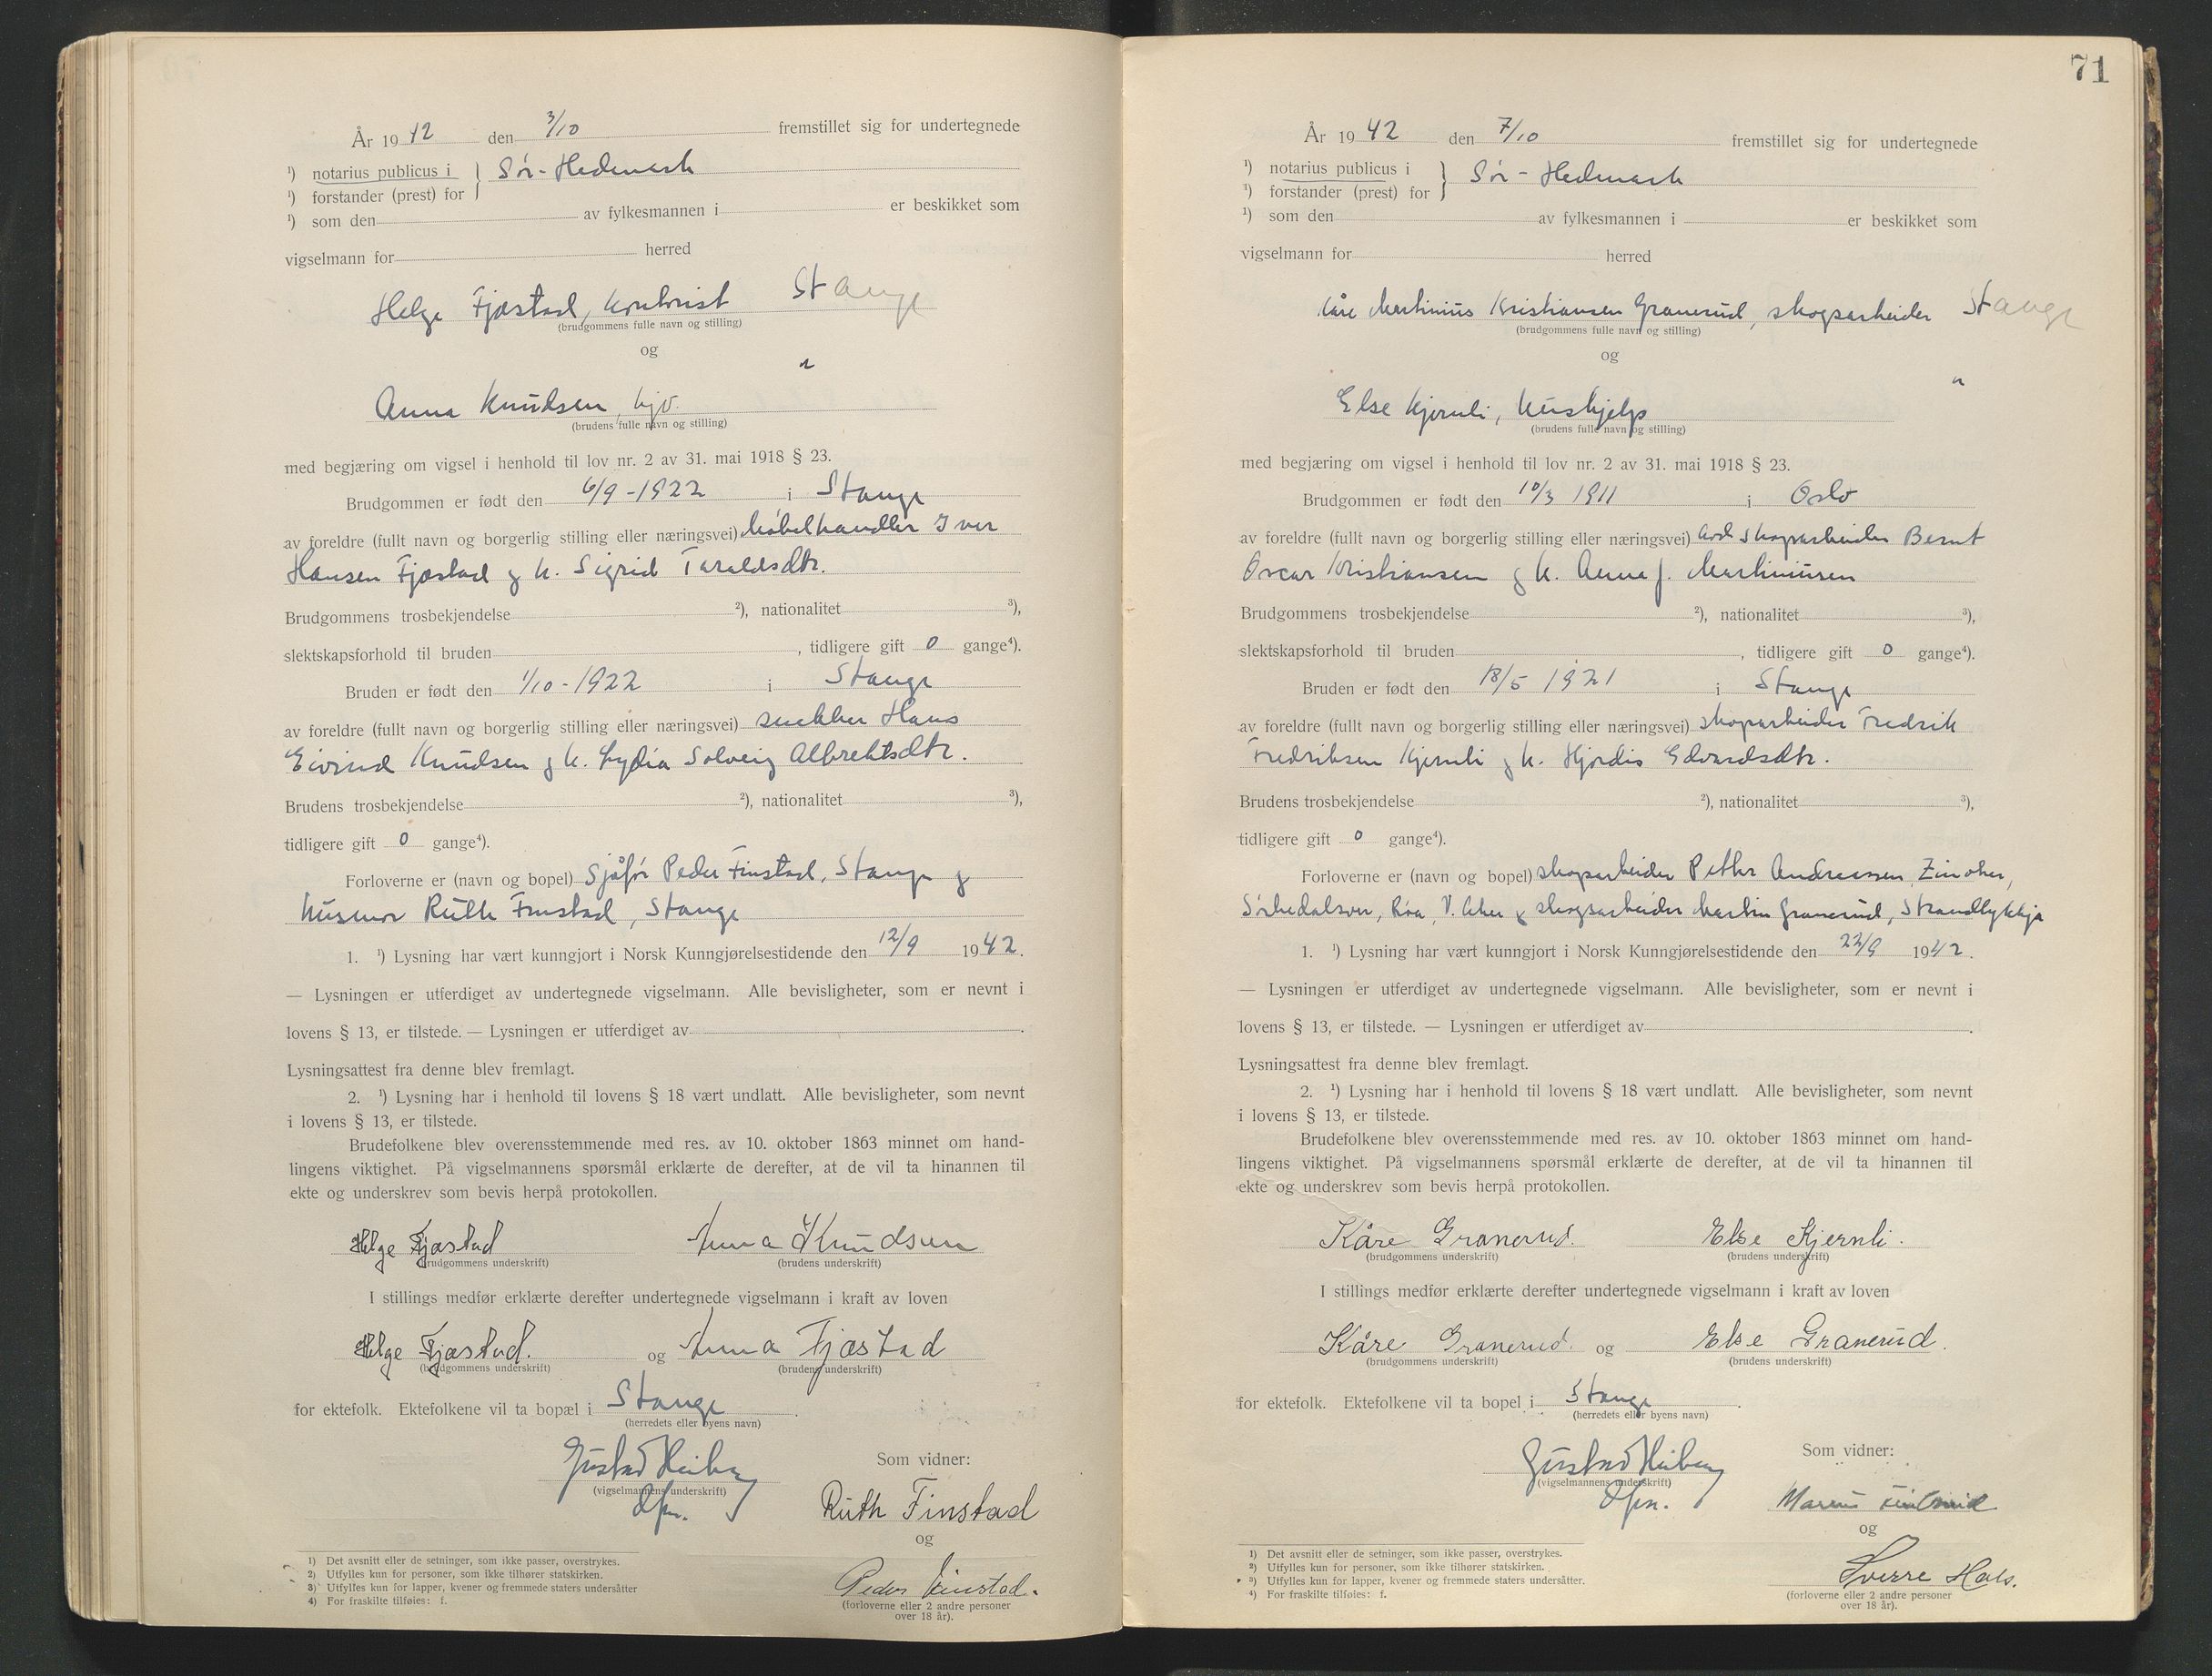 År 19 42 den 3/10 fremstillet sig for undertegnede
¹) notarius publicus i } Sør-Hedmark
¹) forstander (prest) for
¹) som den av fylkesmannen i er beskikket som
vigselmann for herred
Helge Fjæstad, kontorist Stange
(brudgommens fulle navn og stilling)
og
"
Anna Knudsen, hjv.
(brudens fulle navn og stilling)
med begjæring om vigsel i henhold til lov nr. 2 av 31. mai 1918 § 23.
Brudgommen er født den 6/9 - 1922 i Stange
av foreldre (fullt navn og borgerlig stilling eller næringsvei) Møbelhandler Iver
Hansen Fjæstad og h. Sigrid Taraldsdtr.
Brudgommens trosbekjendelse ²), nationalitet ³),
slektskapsforhold til bruden , tidligere gift 0 gange⁴).
Bruden er født den 1/10 - 1922 i Stange
av foreldre (fullt navn og borgerlig stilling eller næringsvei) snekker Hans
Eivind Knudsen og h. Lydia Solveig Albrektsdtr.
Brudens trosbekjendelse ²), nationalitet ³),
tidligere gift 0 gange⁴).
Forloverne er (navn og bopel) Sjåfør Peder Finstad, Stange og
husmor Ruth Finstad, Stange
1. ¹) Lysning har vært kunngjort i Norsk Kunngjørelsestidende den 12/9 19 42.
— Lysningen er utferdiget av undertegnede vigselmann. Alle bevisligheter, som er nevnt i
lovens § 13, er tilstede. — Lysningen er utferdiget av .
Lysningsattest fra denne blev fremlagt.
2. ¹) Lysning har i henhold til lovens § 18 vært undlatt. Alle bevisligheter, som nevnt
i lovens § 13, er tilstede.
Brudefolkene blev overensstemmende med res. av 10. oktober 1863 minnet om hand-
lingens viktighet. På vigselmannens spørsmål erklærte de derefter, at de vil ta hinannen til
ekte og underskrev som bevis herpå protokollen.
Helge Fjæstad Anna Knudsen
(brudgommens underskrift) (brudens underskrift)
I stillings medfør erklærte derefter undertegnede vigselmann i kraft av loven
Helge Fjæstad. og Anna Fjæstad
(brudgommens underskrift) (brudens underskrift)
for ektefolk. Ektefolkene vil ta bopæl i Stange .
(herredets eller byens navn)
Gustav Heiberg
(vigselmannens underskrift)
dfm.
Som vidner:
Ruth Finstad
og
Peder Finstad.
(forloverne eller 2 andre personer
over 18 år).
1) Det avsnitt eller de setninger, som ikke passer, overstrykes.
2) Utfylles kun for personer, som ikke tilhører statskirken.
3) Utfylles kun for lapper, kvener og fremmede staters undersåtter
4) For fraskilte tilføies: f.
71
År 19 42 den 7/10 fremstillet sig for undertegnede
¹) notarius publicus i } Sør-Hedmark
¹) forstander (prest) for
¹) som den av fylkesmannen i er beskikket som
vigselmann for herred
Kåre Martinius Kristiansen Granerud, skogsarbeider Stange
(brudgommens fulle navn og stilling)
og
"
Else Kjernli, hushjelp
(brudens fulle navn og stilling)
med begjæring om vigsel i henhold til lov nr. 2 av 31. mai 1918 § 23.
Brudgommen er født den 10/3 1911 i Oslo
av foreldre (fullt navn og borgerlig stilling eller næringsvei) skogsarbeider Bernt
Oscar Kristiansen og h. Anna f. Martiniusen
Brudgommens trosbekjendelse ²), nationalitet ³),
slektskapsforhold til bruden , tidligere gift 0 gange⁴).
Bruden er født den 18/5 1921 i Stange
av foreldre (fullt navn og borgerlig stilling eller næringsvei) skogsarbeider Fredrik
Fredriksen Kjernli og h. Hjørdis Edvardsdtr.
Brudens trosbekjendelse ²), nationalitet ³),
tidligere gift 0 gange⁴).
Forloverne er (navn og bopel) skogsarbeider Petter Andreassen, Zinober,
Sørkedalsvn, Røa, V. Aker og skogsarbeider Martin Granerud, Strandlykkja
1. ¹) Lysning har vært kunngjort i Norsk Kunngjørelsestidende den 22/9 19 42.
— Lysningen er utferdiget av undertegnede vigselmann. Alle bevisligheter, som er nevnt i
lovens § 13, er tilstede. — Lysningen er utferdiget av .
Lysningsattest fra denne blev fremlagt.
2. ¹) Lysning har i henhold til lovens § 18 vært undlatt. Alle bevisligheter, som nevnt
i lovens § 13, er tilstede.
Brudefolkene blev overensstemmende med res. av 10. oktober 1863 minnet om hand-
lingens viktighet. På vigselmannens spørsmål erklærte de derefter, at de vil ta hinannen til
ekte og underskrev som bevis herpå protokollen.
Kåre Granerud. Else Kjernli.
(brudgommens underskrift) (brudens underskrift)
I stillings medfør erklærte derefter undertegnede vigselmann i kraft av loven
Kåre Granerud. og Else Granerud.
(brudgommens underskrift) (brudens underskrift)
for ektefolk. Ektefolkene vil ta bopel i Stange .
(herredets eller byens navn)
Gustav Heiberg
(vigselmannens underskrift)
dfm.
Som vidner:
og
Sverre Hals.
(forloverne eller 2 andre personer
over 18 år).
1) Det avsnitt eller de setninger, som ikke passer, overstrykes.
2) Utfylles kun for personer, som ikke tilhører statskirken.
3) Utfylles kun for lapper, kvener og fremmede staters undersåtter.
4) For fraskilte tilføies: f.